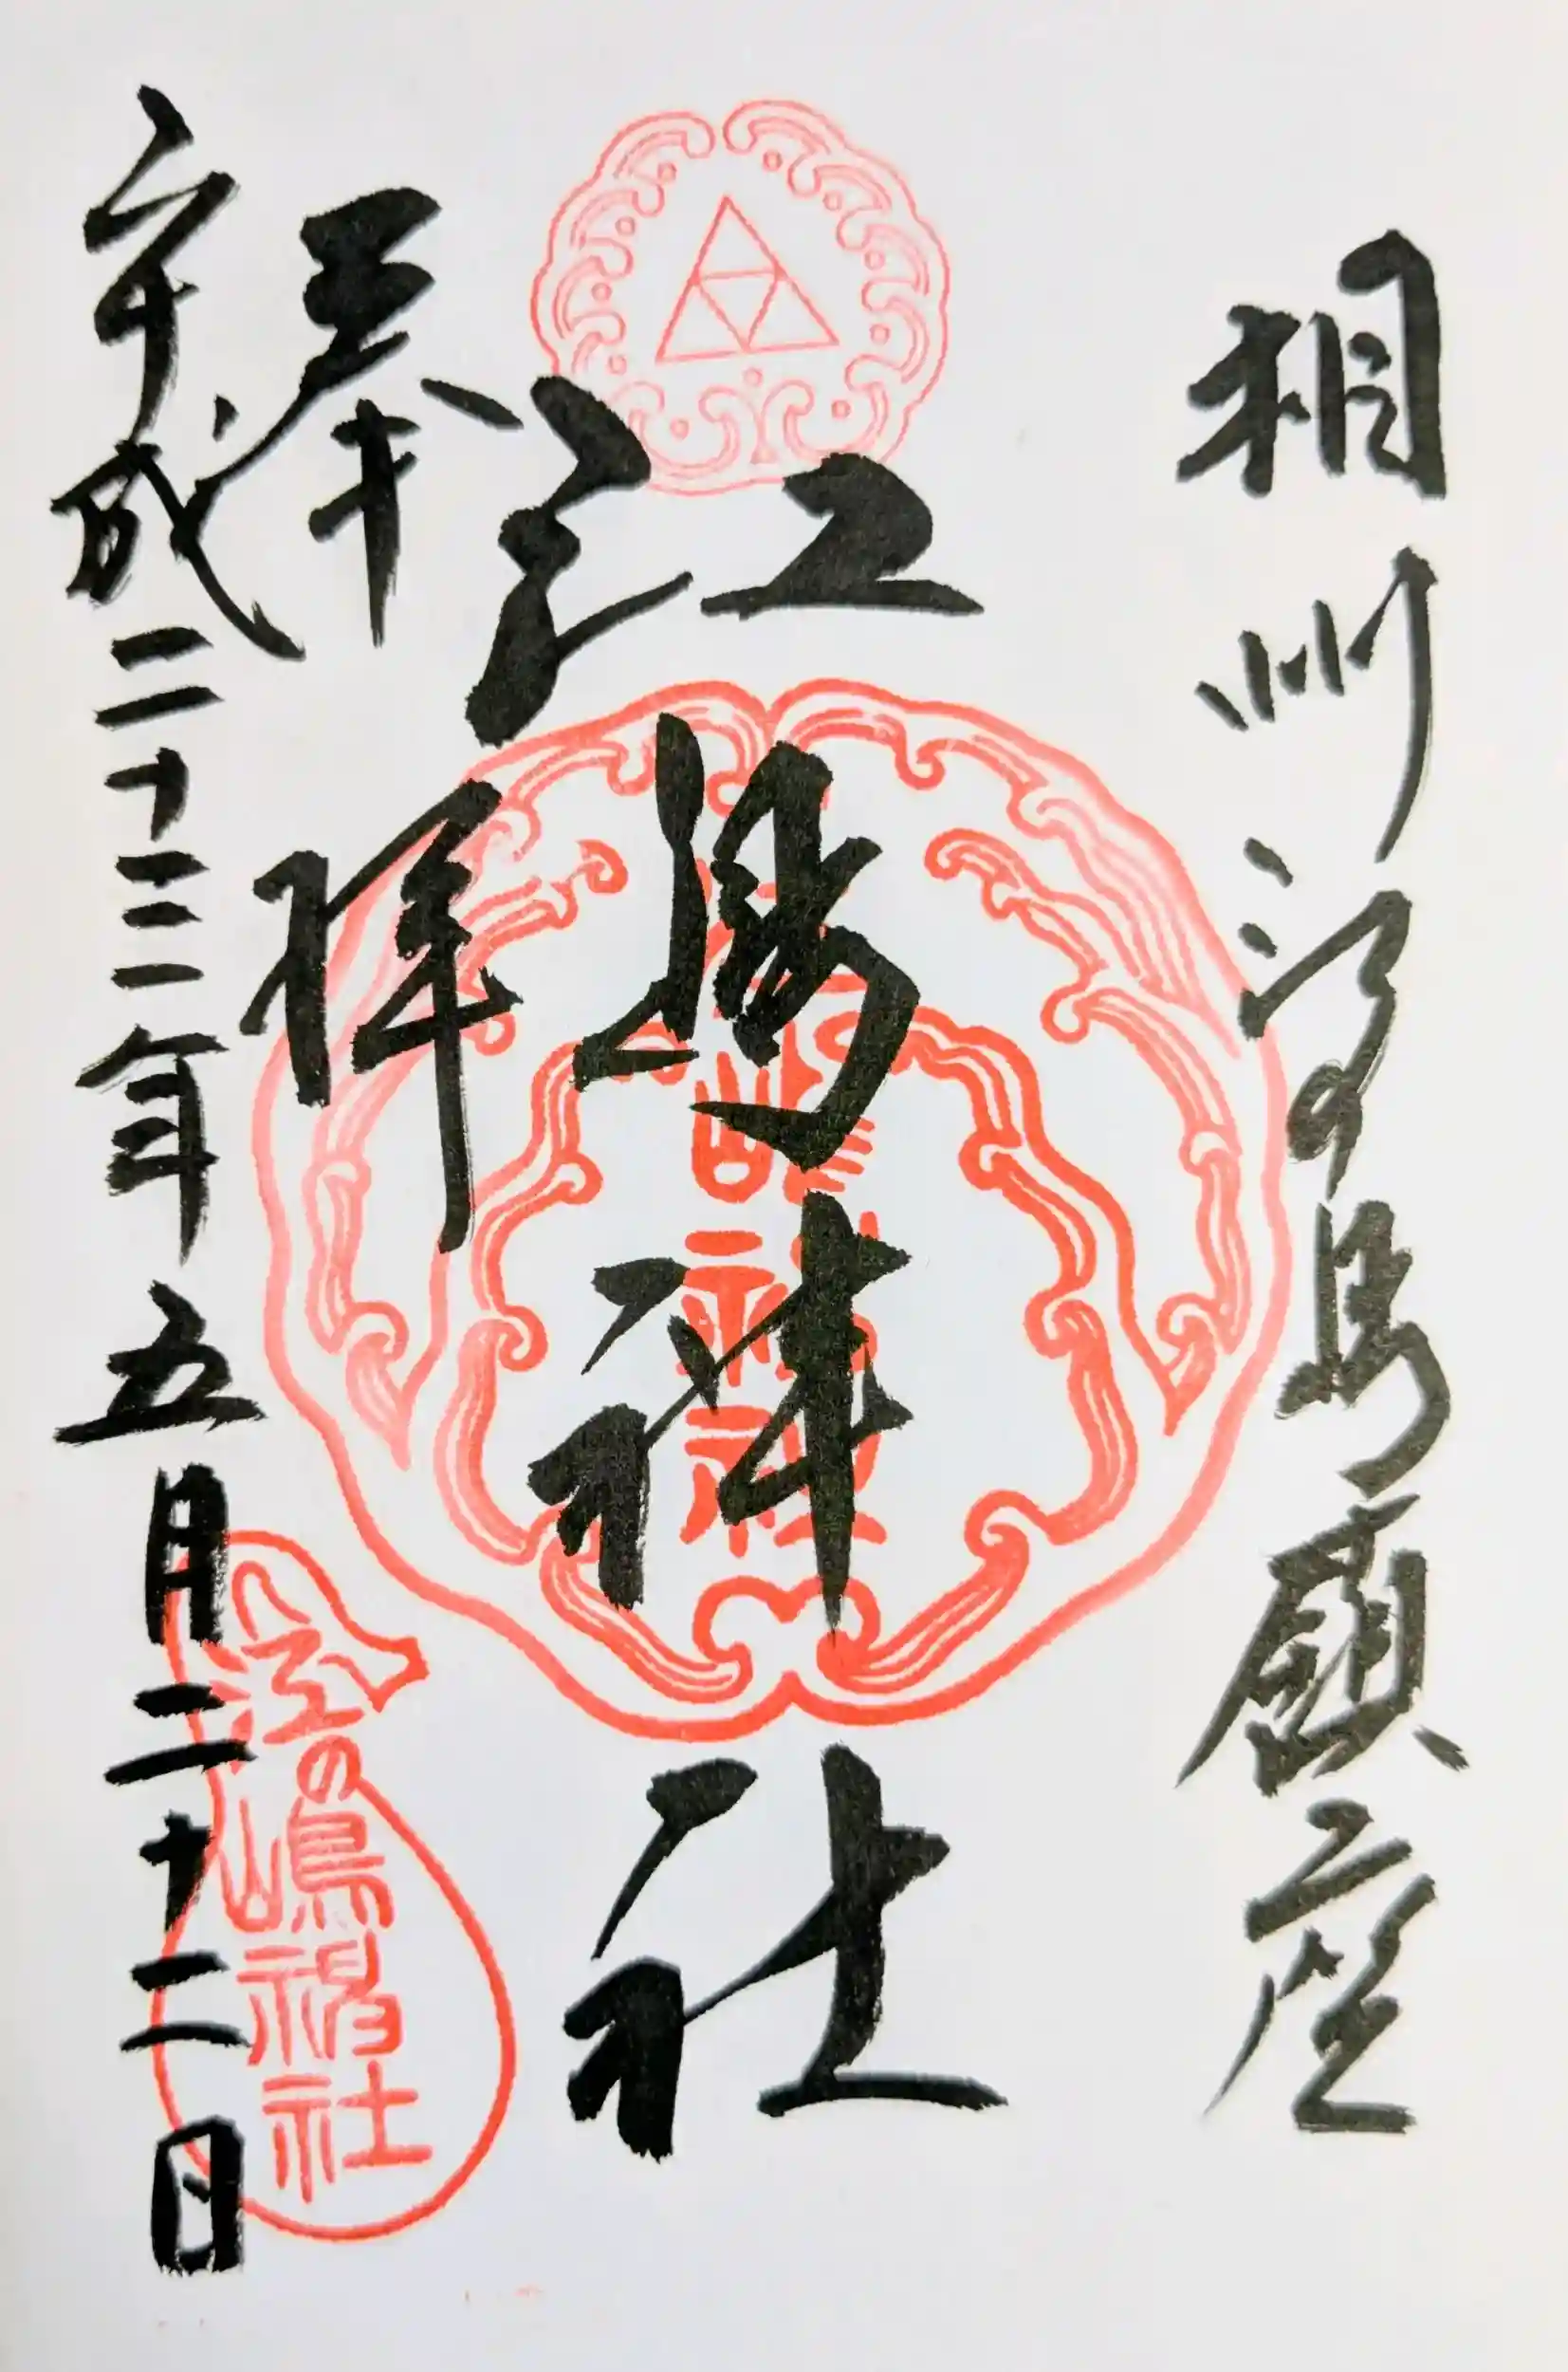 相州江の島鎮座
江嶋神社
奉拝
平成二十三年五月二十二日
江の嶋神社